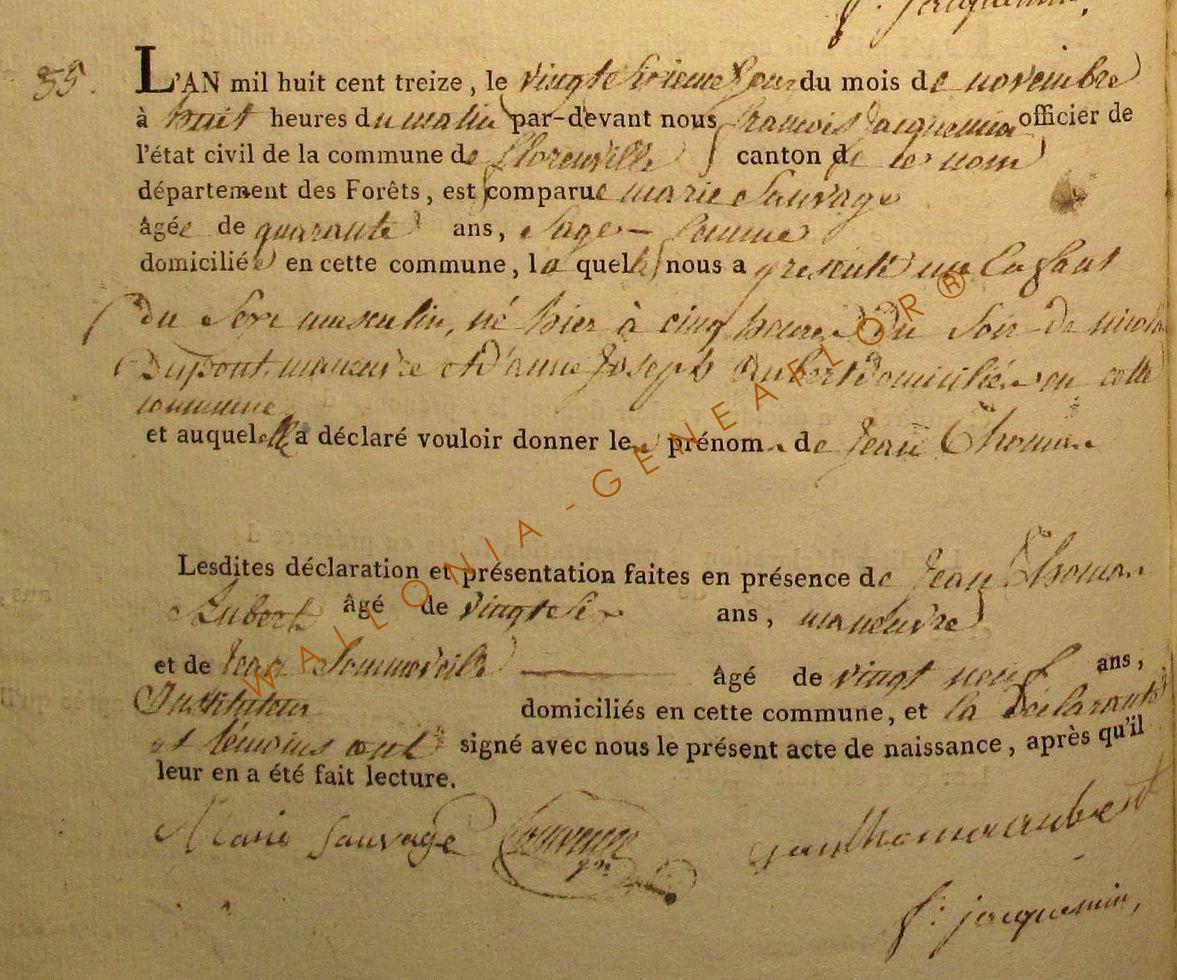 f. jacquemin,
35.
L'AN mil huit cent treize, le vingt Sixieme Jour du mois de novembre
à huit heures du matin par-devant nous francois Jacquemin officier de
l'état civil de la commune de florenville canton de ce nom
département des Forêts, est comparue marie Sauvage
âgée de quarante ans, Sage-femme
domiciliée en cette commune, la quelle nous a presenté un Enfant
Du Sexe masculin, né hier à cinq heures Du Soir De nicolas
Dupont, maneuvre et D'anne Joseph Aubert Domiciliés en cette
commune
et auquel elle a déclaré vouloir donner les prénoms de Jean Thomas
Lesdites déclaration et présentation faites en présence de Jean Thomas
Aubert âgé de vingt Six ans, maneuvre
et de Jean Sommeveille âgé de vingt neuf ans,
Instituteur domiciliés en cette commune, et la Déclarante
et témoins ont signé avec nous le présent acte de naissance, après qu'il
leur en a été fait lecture.
Marie Sauvage jeanthomas aubert
f: jacquemin,
WALLONIA-GENEAFLOR®